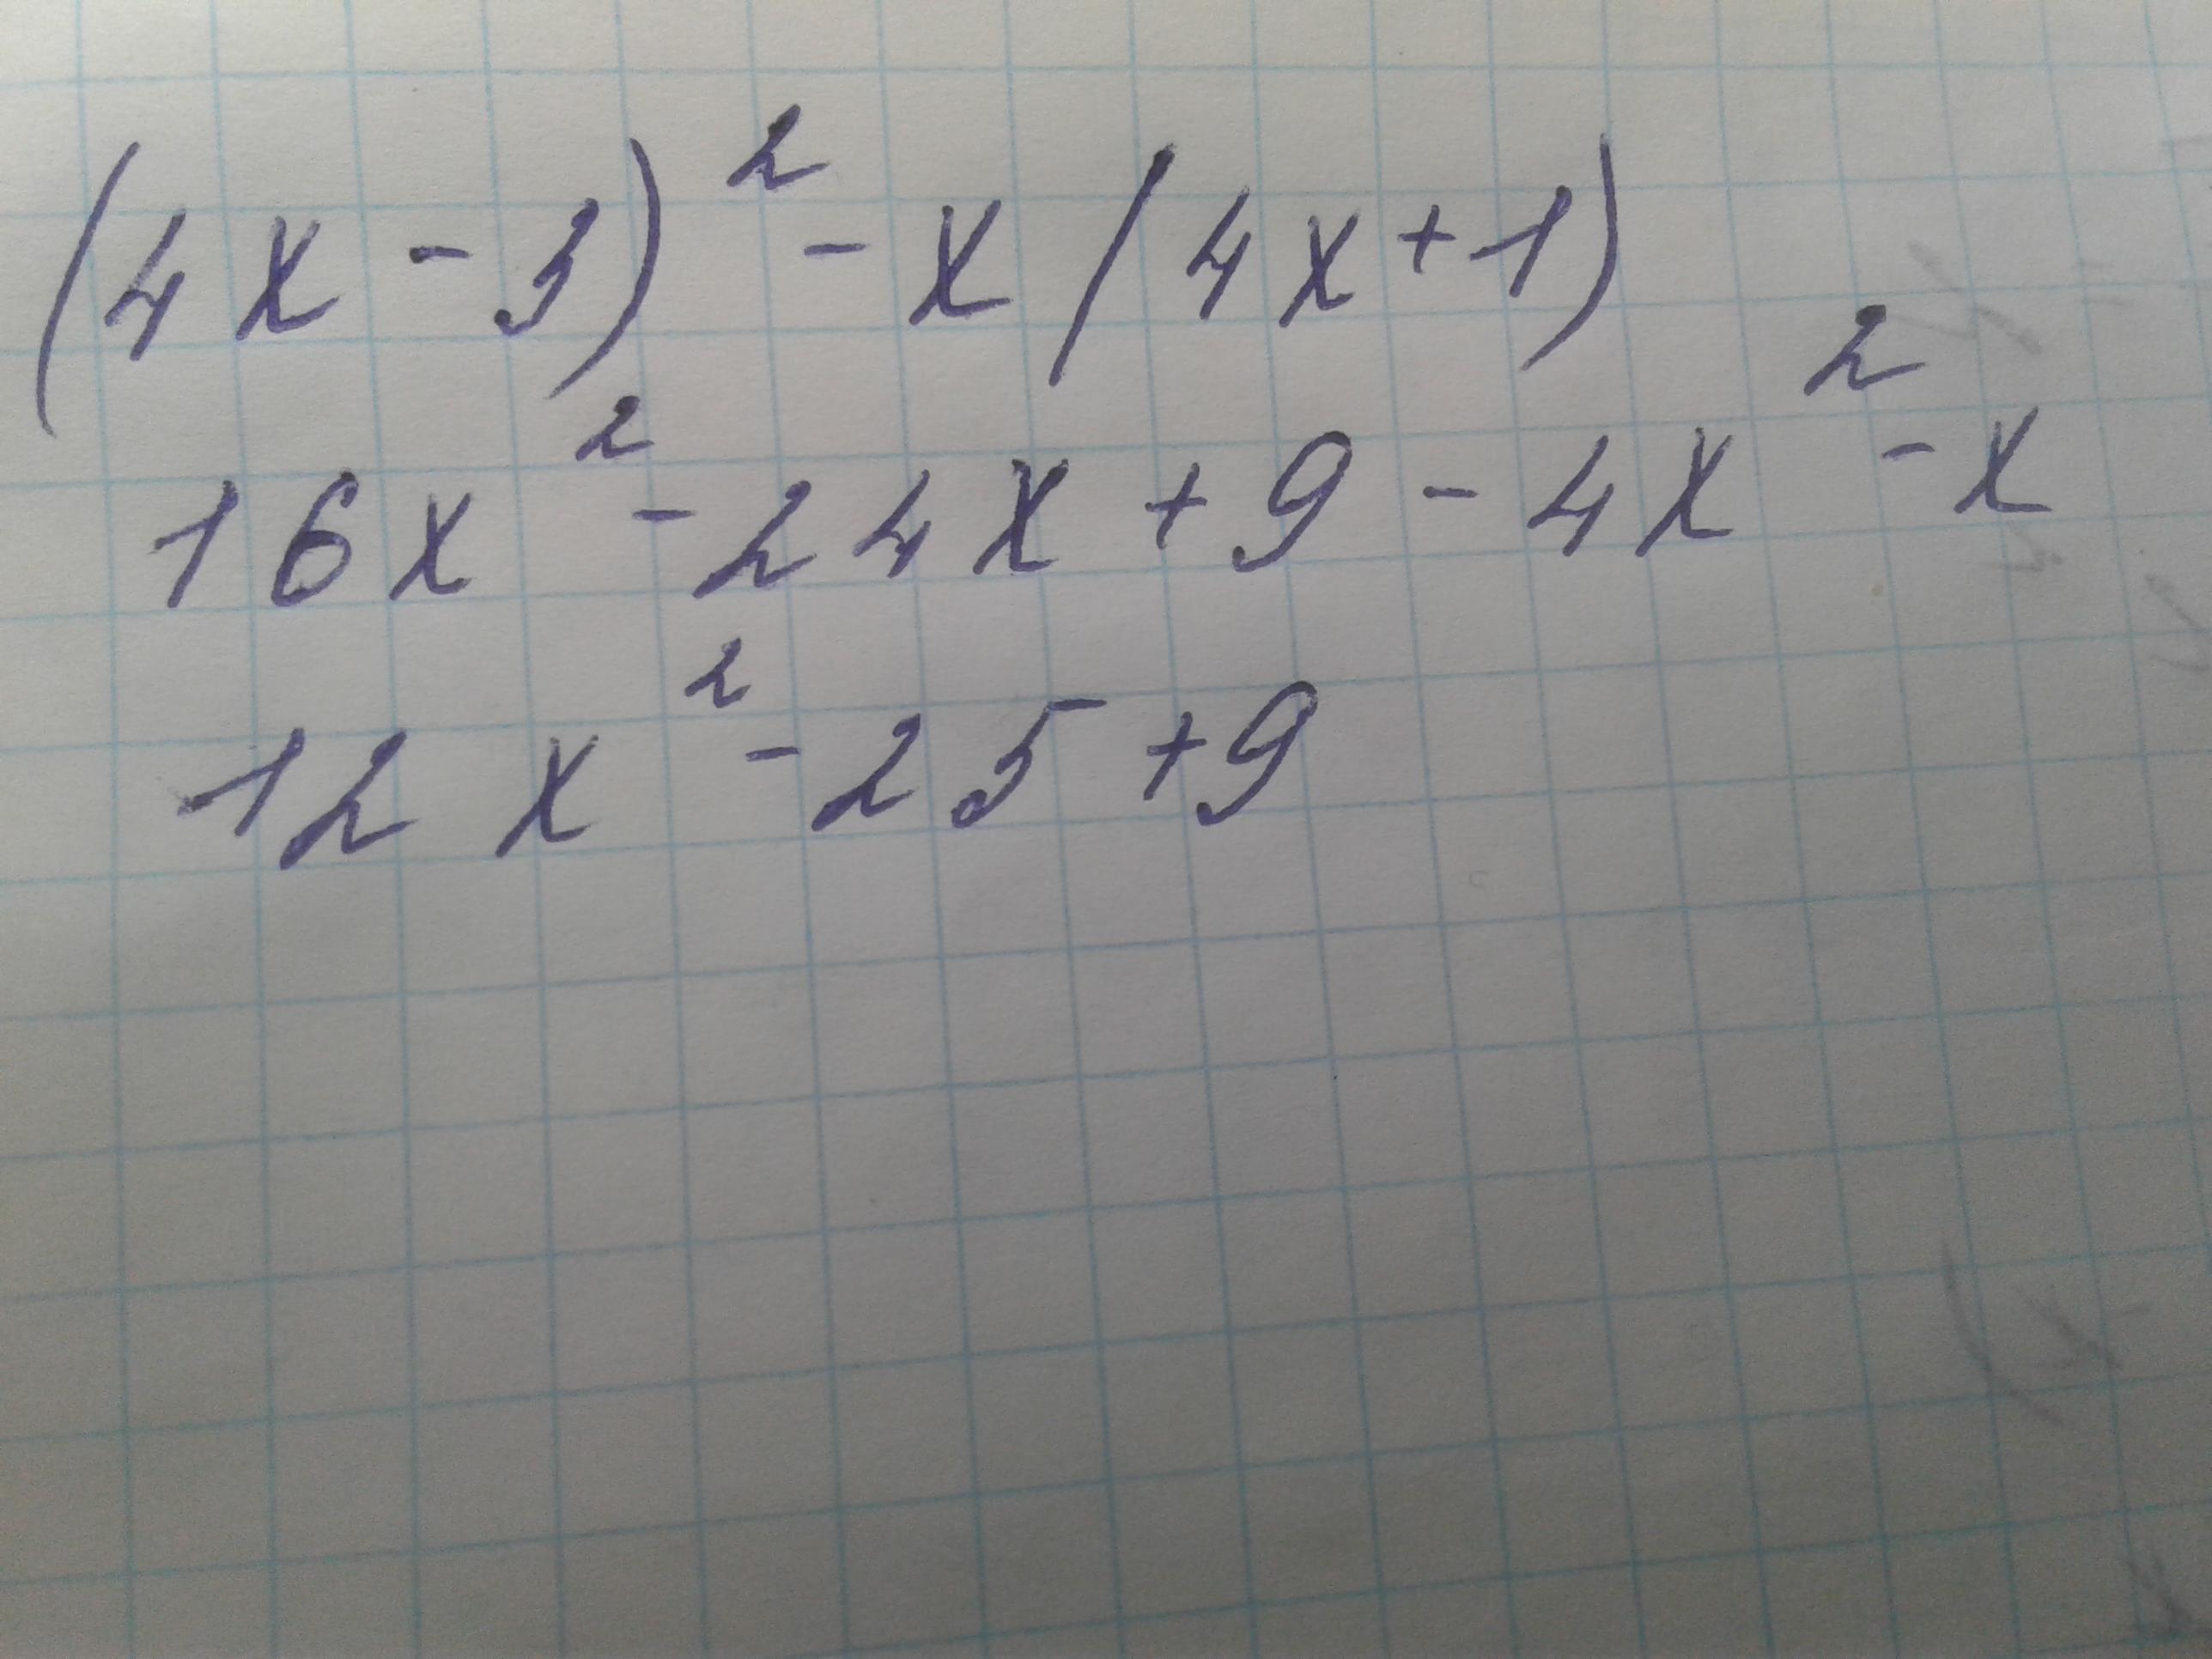 (4x-3)² - x(4x+1)
16x² - 24x + 9 - 4x² - x
12x² - 25 + 9